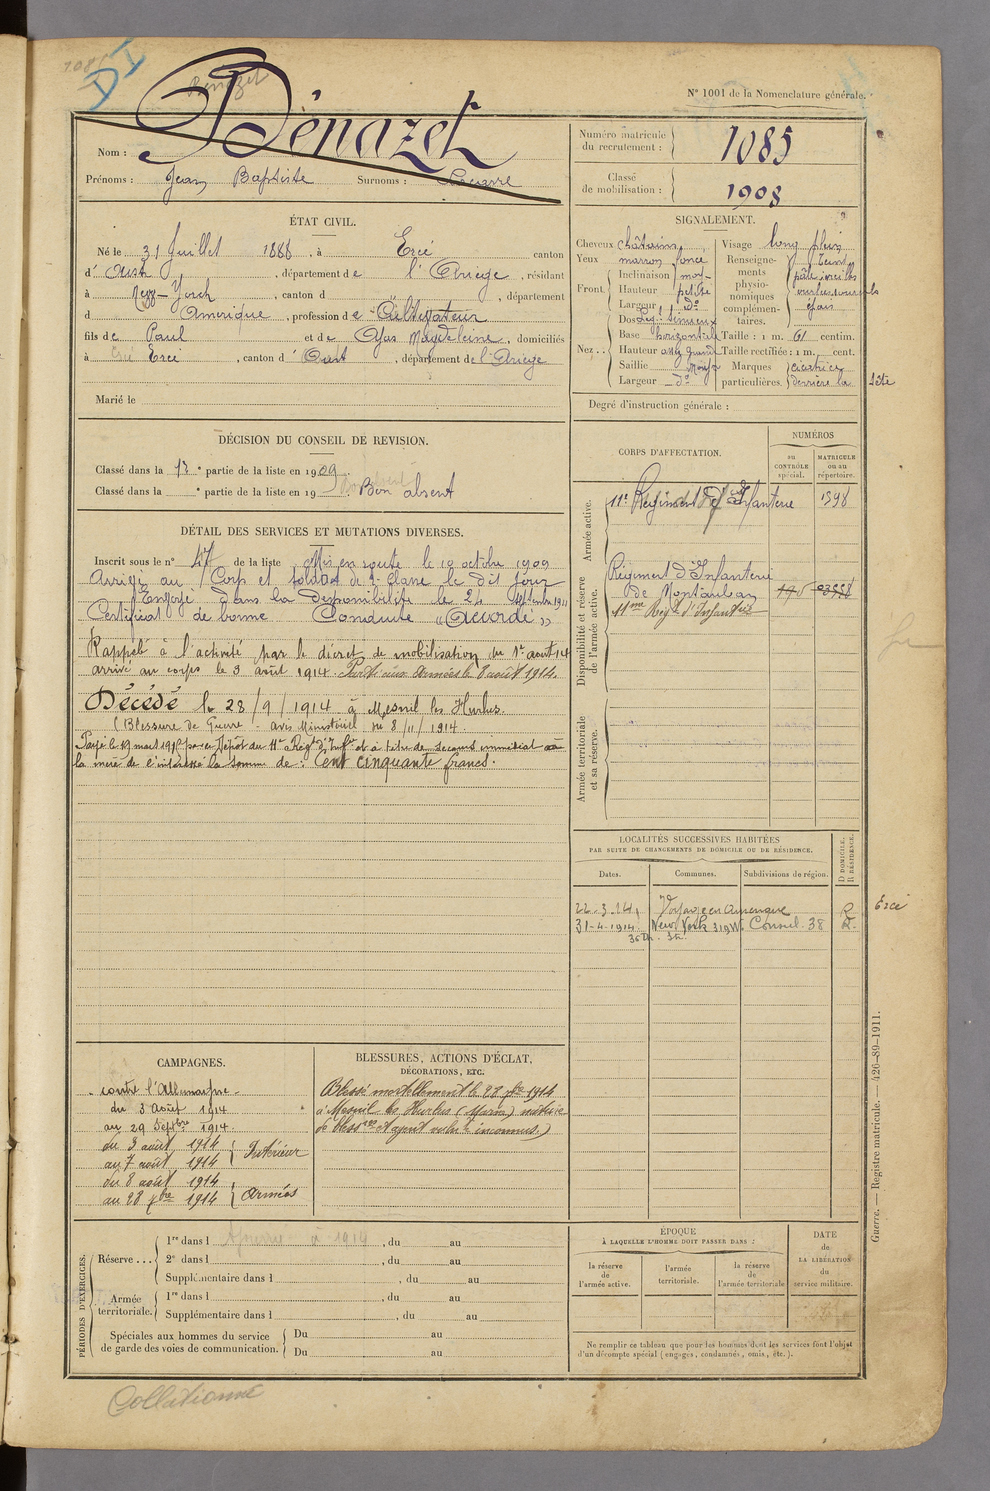 N° 1001 de la Nomenclature générale.
DI
Bénazet
Nom : Bénazet
Prénoms : Jean Baptiste Surnoms :
Numéro matricule du recrutement : 1085
Classe de mobilisation : 1908
ÉTAT CIVIL.
Né le 31 Juillet 1888, à Ercé canton
d'Oust, département de l'Ariège, résidant
à New-Yorck, canton d , département
d Amérique, profession de Cultivateur
fils de Paul et de Ajas Magdeleine, domiciliés
à Ercé, canton d'Oust, département de l'Ariège
Marié le
SIGNALEMENT.
Cheveux châtains
Yeux marron foncé
Front Inclinaison moy
Haupteur petite
Largeur do
Nez Dos Lég. Sinueux
Base horizontale
Hauteur assez grande
Saillie moy
Largeur do
Visage long plein
Renseignements physionomiques complémentaires. Teint pâle, oreilles épais
Taille : 1 m. 61 centim.
Taille rectifiée : 1 m. cent.
Marques particulières. cicatrice derrière la tête
Degré d'instruction générale :
DÉCISION DU CONSEIL DE REVISION.
Classé dans la 1re partie de la liste en 1909.
Classé dans la e partie de la liste en 19 . Bon absent
DÉTAIL DES SERVICES ET MUTATIONS DIVERSES.
Inscrit sous le n° 47 de la liste Mis en route le 10 octobre 1909
Arrivé au Corps et soldat de 2e classe le dit jour
Envoyé dans la disponibilité le 24 septembre 1911
Certificat de bonne Conduite « Accordé »
Rappelé à l'activité par le décret de mobilisation du 1er août 14
arrivé au corps le 3 août 1914. Parti aux Armées le 8 août 1914.
Décédé le 28/9/1914 à Mesnil les Hurlus.
(Blessure de Guerre - avis Ministériel 8/11/1914.
Payé le 19 mars 191 par le Dépôt du 11e Régt d'Infie et à titre de secours immédiat à
la mère de l'intéressé la somme de : Cent cinquante francs.
CORPS D'AFFECTATION.
NUMÉROS
au CONTRÔLE spécial.
MATRICULE ou au répertoire.
Armée active.
11e Régiment d'Infanterie 1398
Disponibilité et réserve de l'armée active.
Régiment d'Infanterie
de Montauban
11me Régt d'Infanterie
Armée territoriale et sa réserve.
LOCALITÉS SUCCESSIVES HABITÉES
PAR SUITE DE CHANGEMENTS DE DOMICILE OU DE RÉSIDENCE.
Dates. Communes. Subdivisions de région. D DOMICILE. R RÉSIDENCE.
22-3-14 Voyage en Amérique R Ercé
31-4-1914 New York 319 W. Consul. 38 R.
36 Th. St.
CAMPAGNES.
contre l'Allemagne
du 3 Août 1914
au 29 Septbre 1914
du 3 août 1914
au 7 août 1914 Intérieur
du 8 août 1914
au 28 7bre 1914 Armées
BLESSURES, ACTIONS D'ÉCLAT, DÉCORATIONS, ETC.
Blessé mortellement le 28 7bre 1914
à Mesnil les Hurlus (Marne) nature
de blessres et agent vulnt inconnus.)
PÉRIODES D'EXERCICES.
Réserve ... 1re dans l , du au
2e dans l , du au
Supplémentaire dans l , du au
Armée territoriale. 1re dans l , du au
Supplémentaire dans l , du au
Spéciales aux hommes du service de garde des voies de communication. Du au
Du au
ÉPOQUE
À LAQUELLE L'HOMME DOIT PASSER DANS :
la réserve de l'armée active.
l'armée territoriale.
la réserve de l'armée territoriale
DATE de LA LIBÉRATION du service militaire.
Ne remplir ce tableau que pour les hommes dont les services font l'objet
d'un décompte spécial (engagés, condamnés, omis, etc.).
Guerre. — Registre matricule. — 426-89-1911.
Collationné